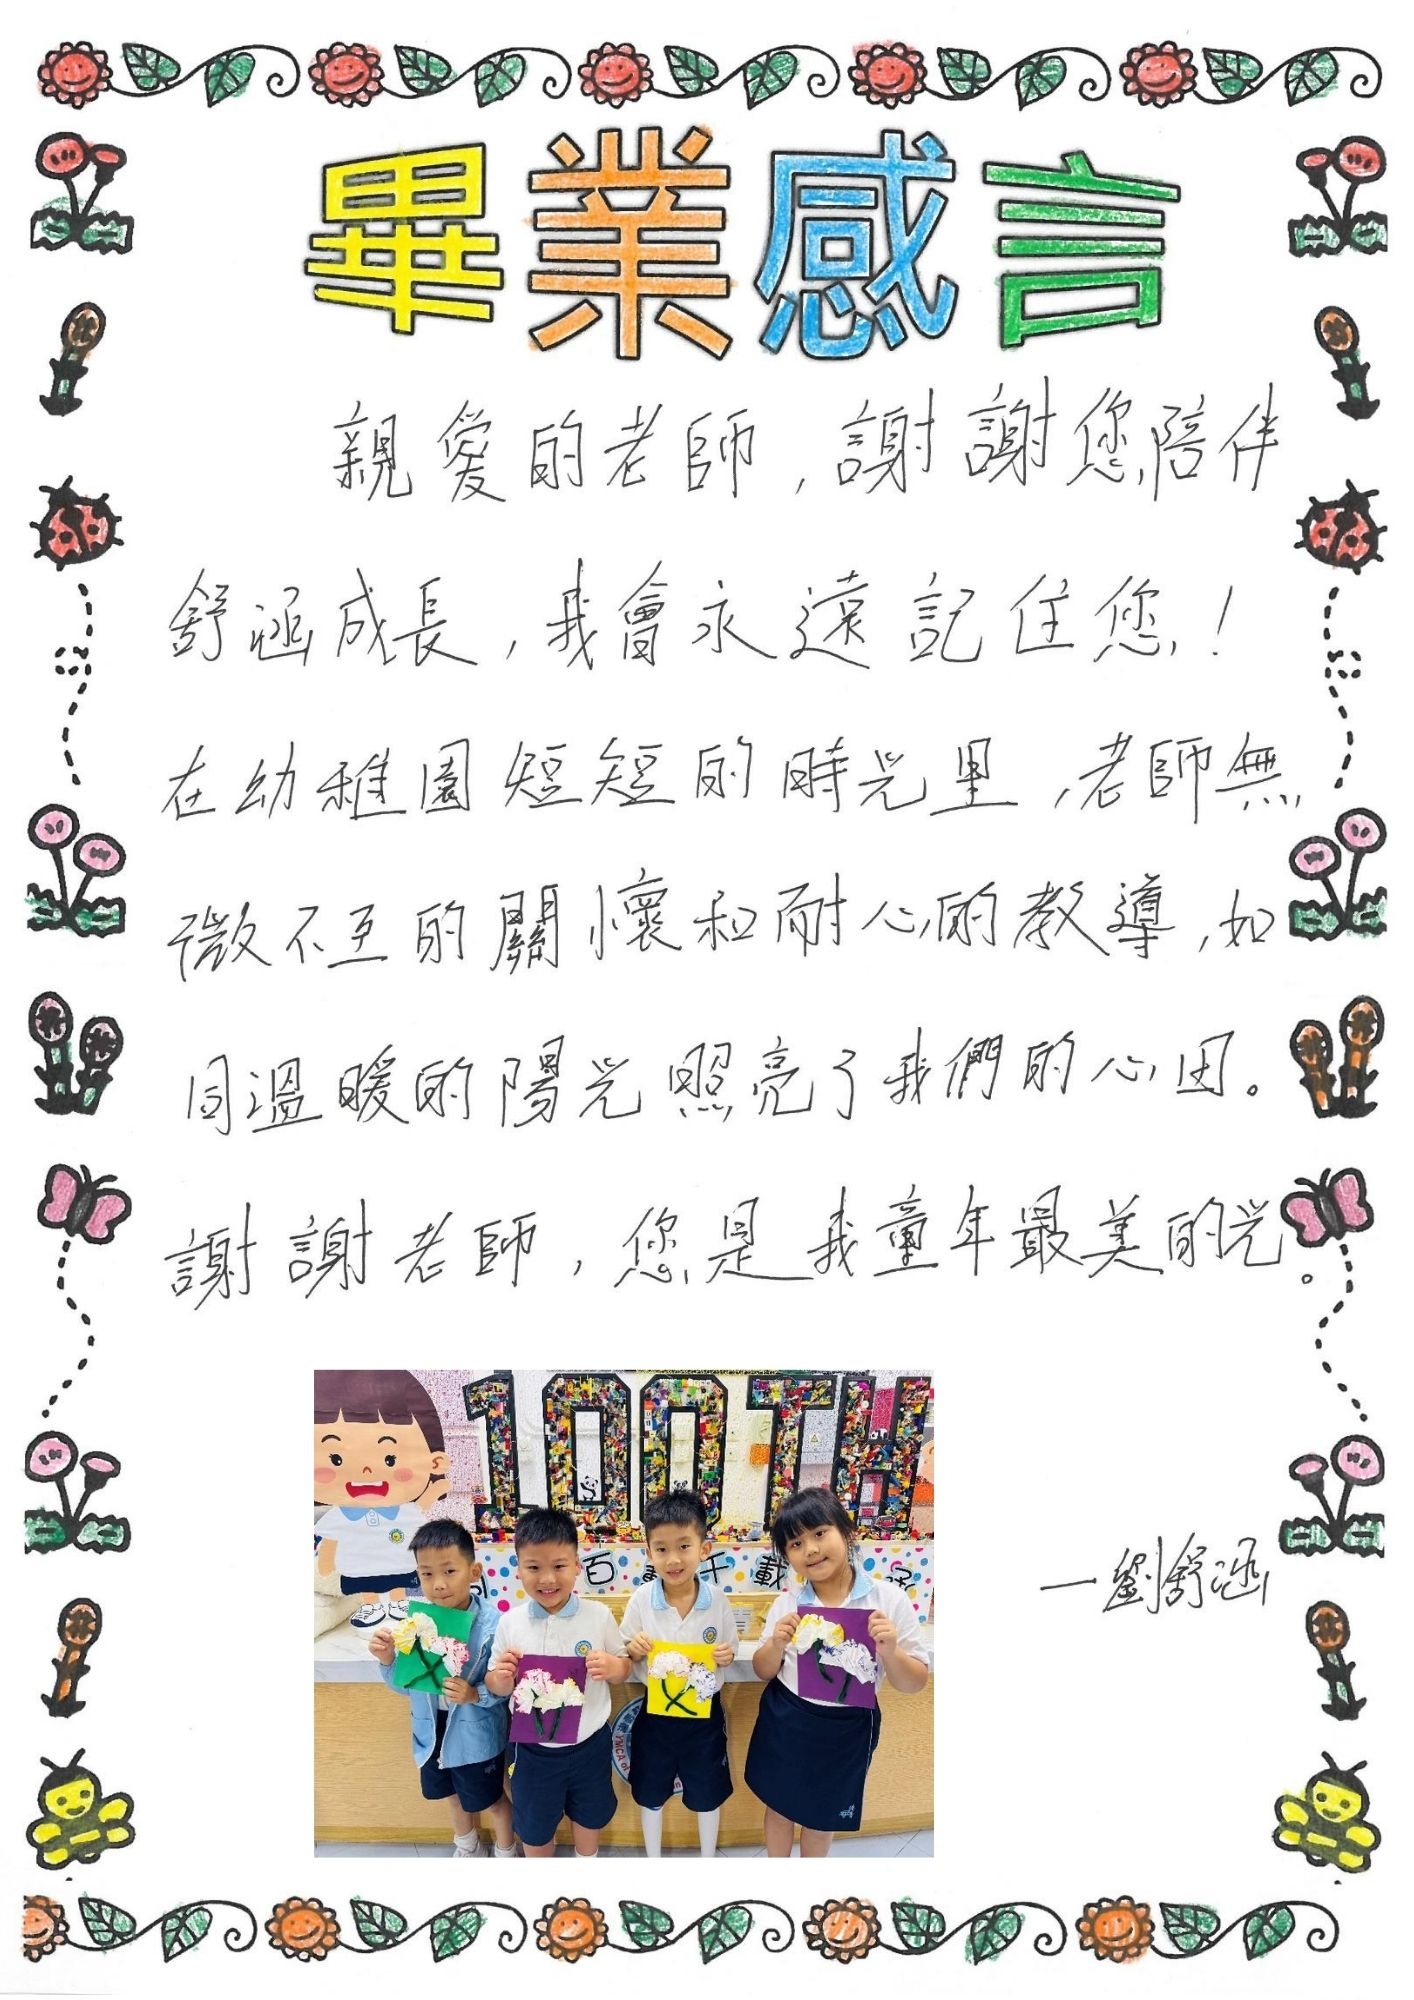 畢業感言
親愛的老師，謝謝您陪伴
舒涵成長，我會永遠記住您！
在幼稚園短短的時光里，老師無
微不至的關懷和耐心的教導，如
同溫暖的陽光照亮了我們的心田。
謝謝老師，您是我童年最美的光。
100TH
百 千載
一劉舒涵